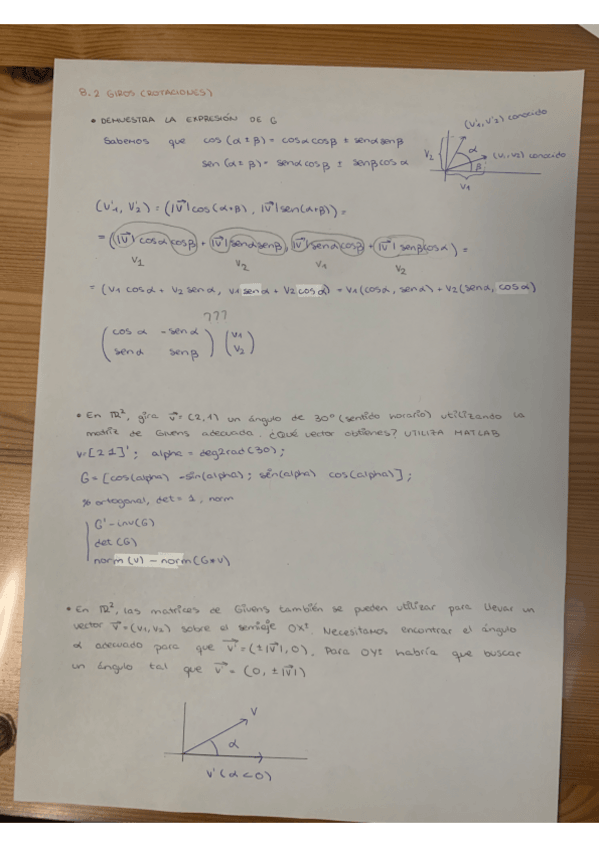 8.2 GIROS (ROTACIONES)
• DEMUESTRA LA EXPRESIÓN DE G
Sabemos que cos (α ± β) = cosα cosβ ± senα senβ
sen (α ± β) = senα cosβ ± senβ cos α
(V'1, V'2) conocido
(V1, V2) conocido
α
β
V2
V1
(V'1, V'2) = (|V⃗| cos(α+β), |V⃗| sen(α+β)) =
= (|V⃗| cosα cosβ + |V⃗| senα senβ, |V⃗| senα cosβ + |V⃗| senβ cosα) =
V1 V2 V1 V2
= (V1 cos α + V2 sen α, V1 sen α + V2 cos α) = V1 (cosα, senα) + V2 (senα, cosα)
???
( cos α - sen α ) ( V1 )
( sen α sen β ) ( V2 )
• En ℝ², gira v⃗ = (2,1) un ángulo de 30º (sentido horario) utilizando la
matriz de Givens adecuada. ¿Qué vector obtienes? UTILIZA MATLAB
v=[2 1]'; alpha = deg2rad(30);
G = [cos(alpha) -sin(alpha); sin(alpha) cos(alpha)];
% ortogonal, det = 1, norm
G' - inv(G)
det(G)
norm(v) - norm(G*v)
• En ℝ², las matrices de Givens también se pueden utilizar para llevar un
vector v⃗ = (v1, v2) sobre el semieje OX⁺. Necesitamos encontrar el ángulo
α adecuado para que v⃗' = (±|v⃗|, 0). Para OY⁺ habría que buscar
un ángulo tal que v⃗' = (0, ±|v⃗|)
V
α
V' (α < 0)